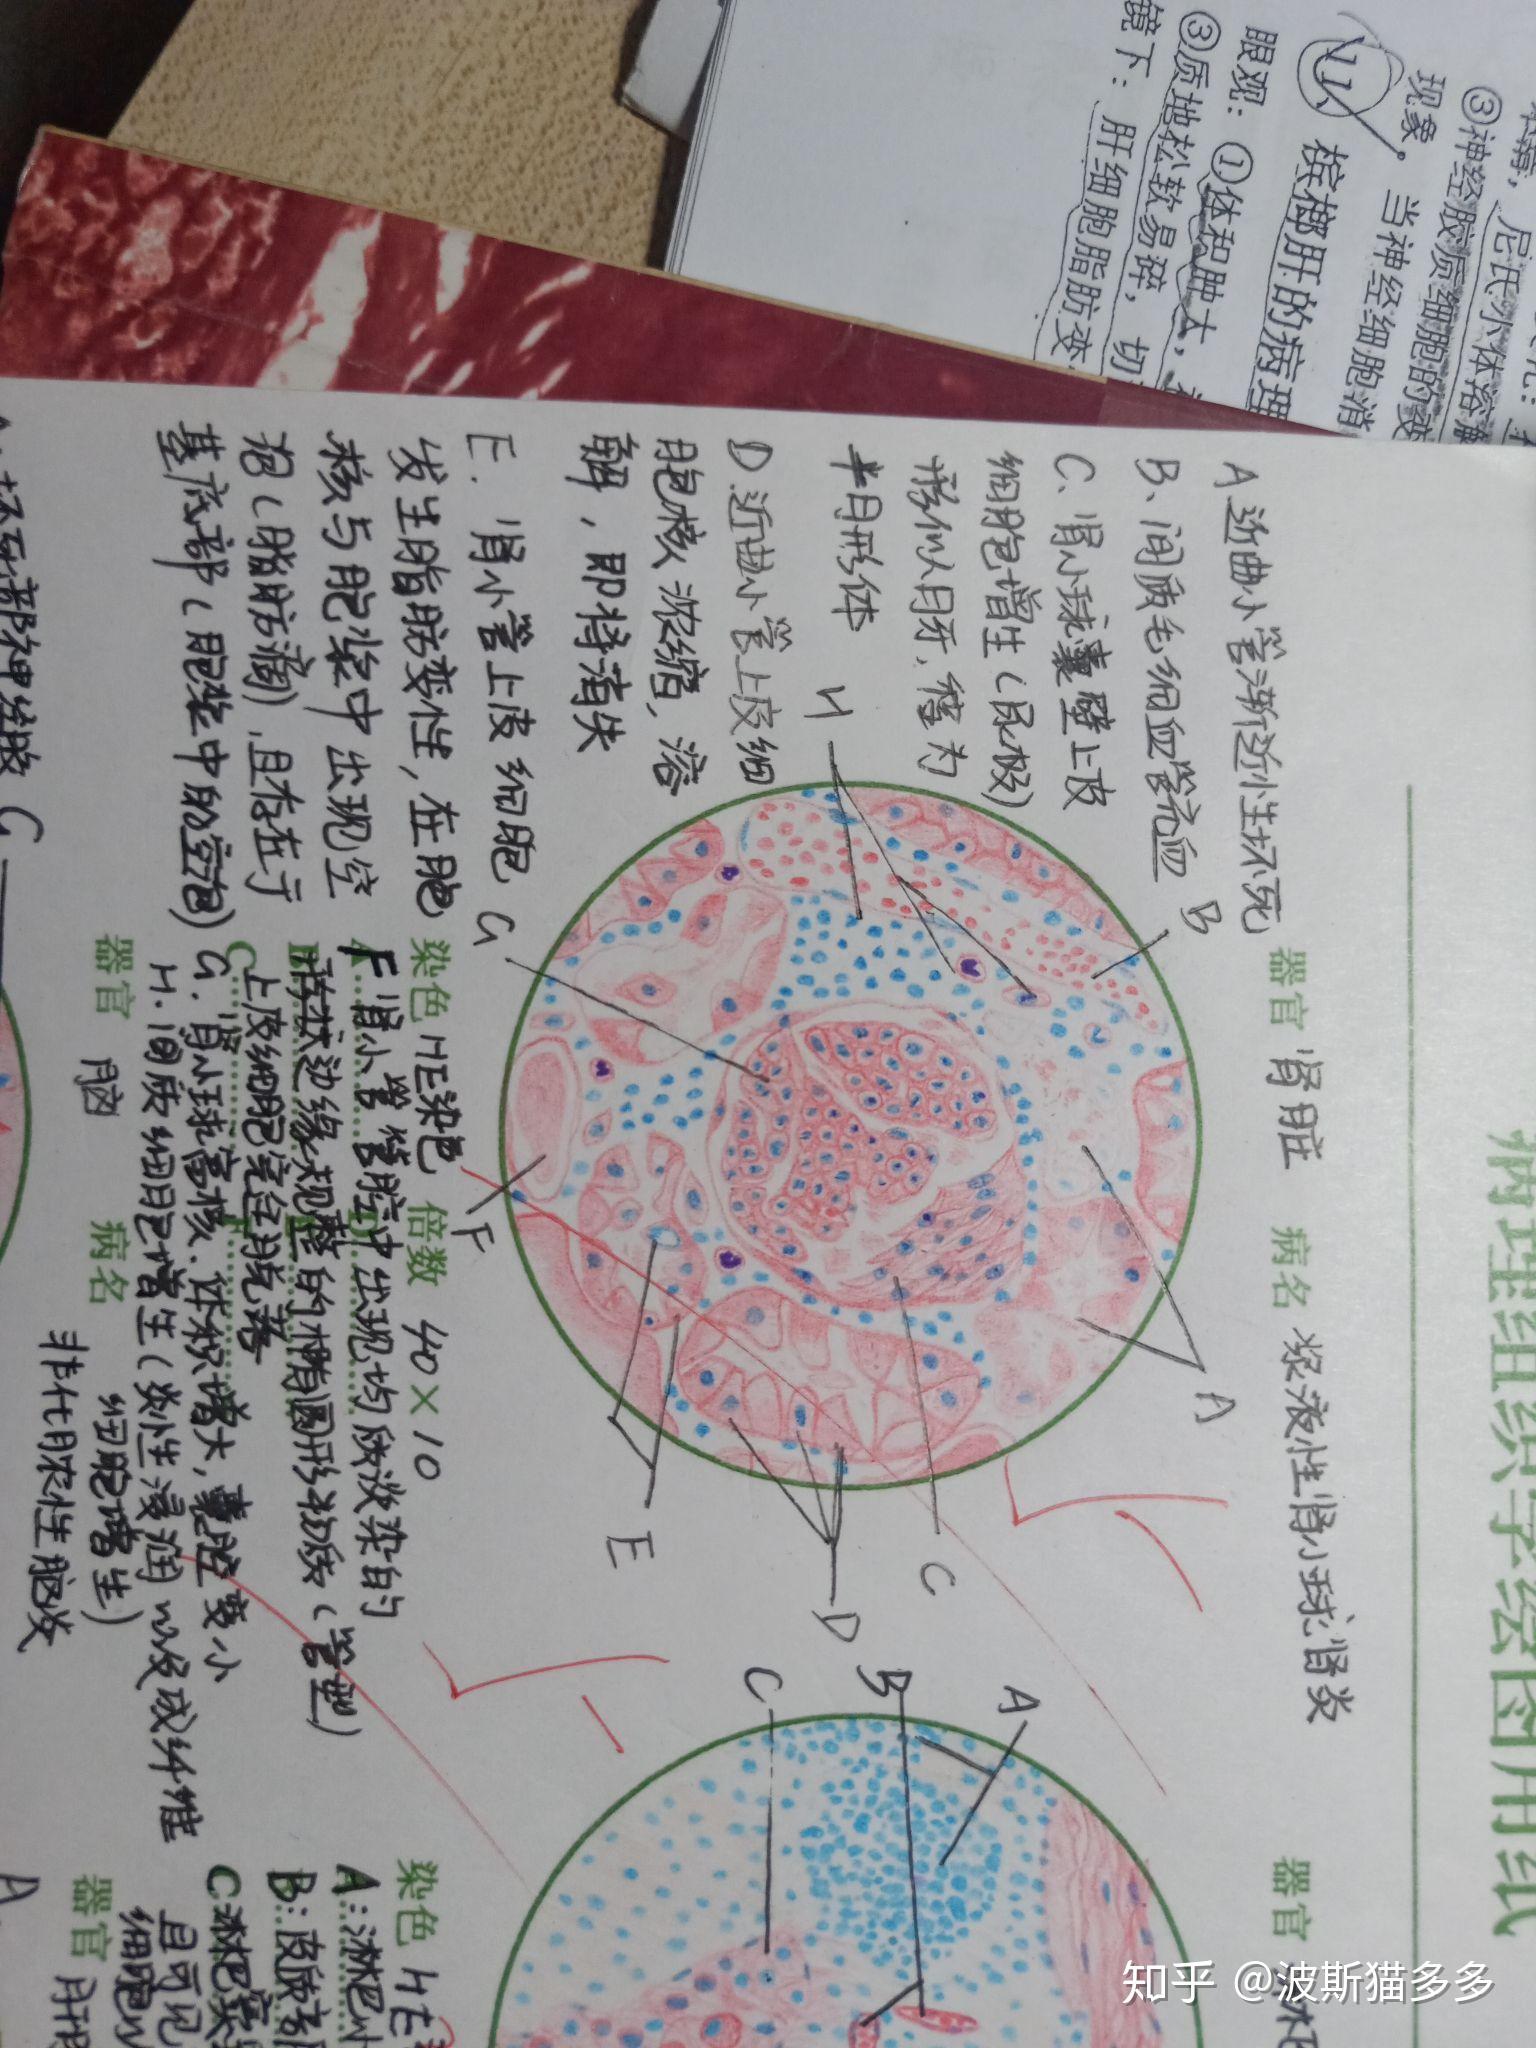 ③神经胶质细胞的变
现象。当神经细胞消
槟榔肝的病理
眼观：①体积肿大，
③质地松软易碎，切
镜下：肝细胞脂肪变
病理组织学绘图用纸
器官 肾脏 病名 浆液性肾小球肾炎
A 近曲小管渐近性坏死
B、间质毛细血管充血
C、肾小球囊壁上皮
细胞增生（尿极）
形似月牙，称为
半月形体
D 近曲小管上皮细
胞核浓缩，溶
解，即将消失
E. 肾小管上皮细胞
发生脂肪变性，在胞
核与胞浆中出现空
泡（脂肪滴），且存在于
基底部（胞浆中的空泡）
H
B
G
A
F
E
D
C
染色 HE染色 倍数 40×10
F 肾小管管腔中出现均质淡染的
边缘规整的椭圆形物质（管型）
上皮细胞完全脱落
G. 肾小球富核、体积增大，囊腔变小
H. 间质细胞增生（炎性浸润）以及成纤维
细胞增生）
器官 脑 病名 非化脓性脑炎
C
器官
A
B
C
染色 HE
A：淋巴小
B：皮质
C 淋巴窦
且可见
细胞
器官 肝
A
知乎 @波斯猫多多